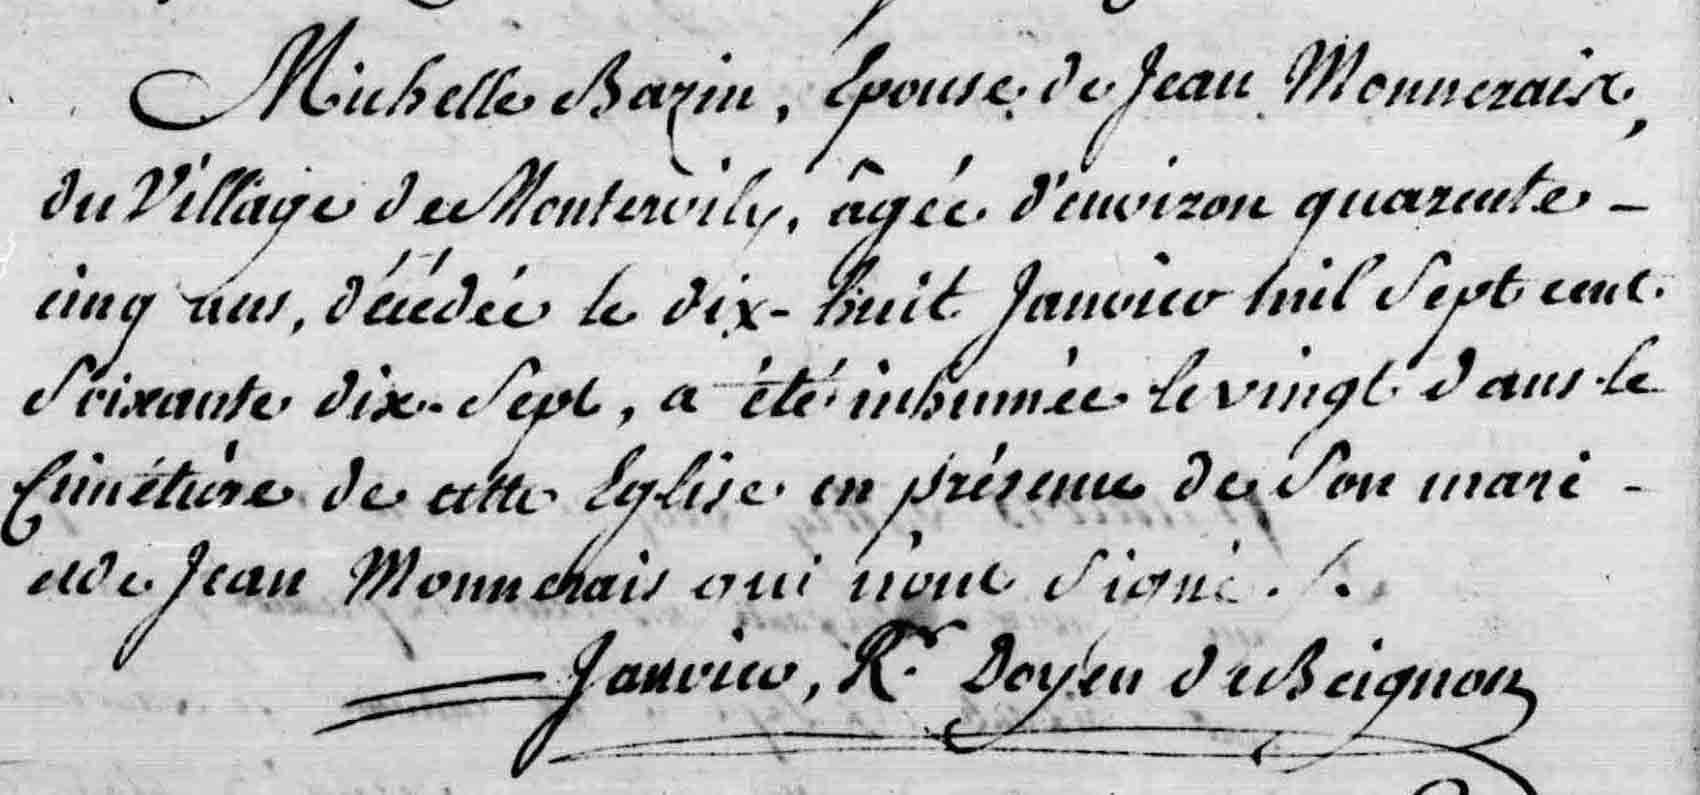 Michelle Bazin, Epouse de Jean Monneraix,
du Village de Montervily, âgée d'environ quarente -
cinq ans, décédée le dix-huit Janvier mil Sept cent
Soixante dix-Sept, a été inhumée le vingt dans le
Cimétière de cette Eglise en présence de Son mari -
et de Jean Monnerais qui n'ont Signé ./.
Janvier, Rr. Doyen de Beignon